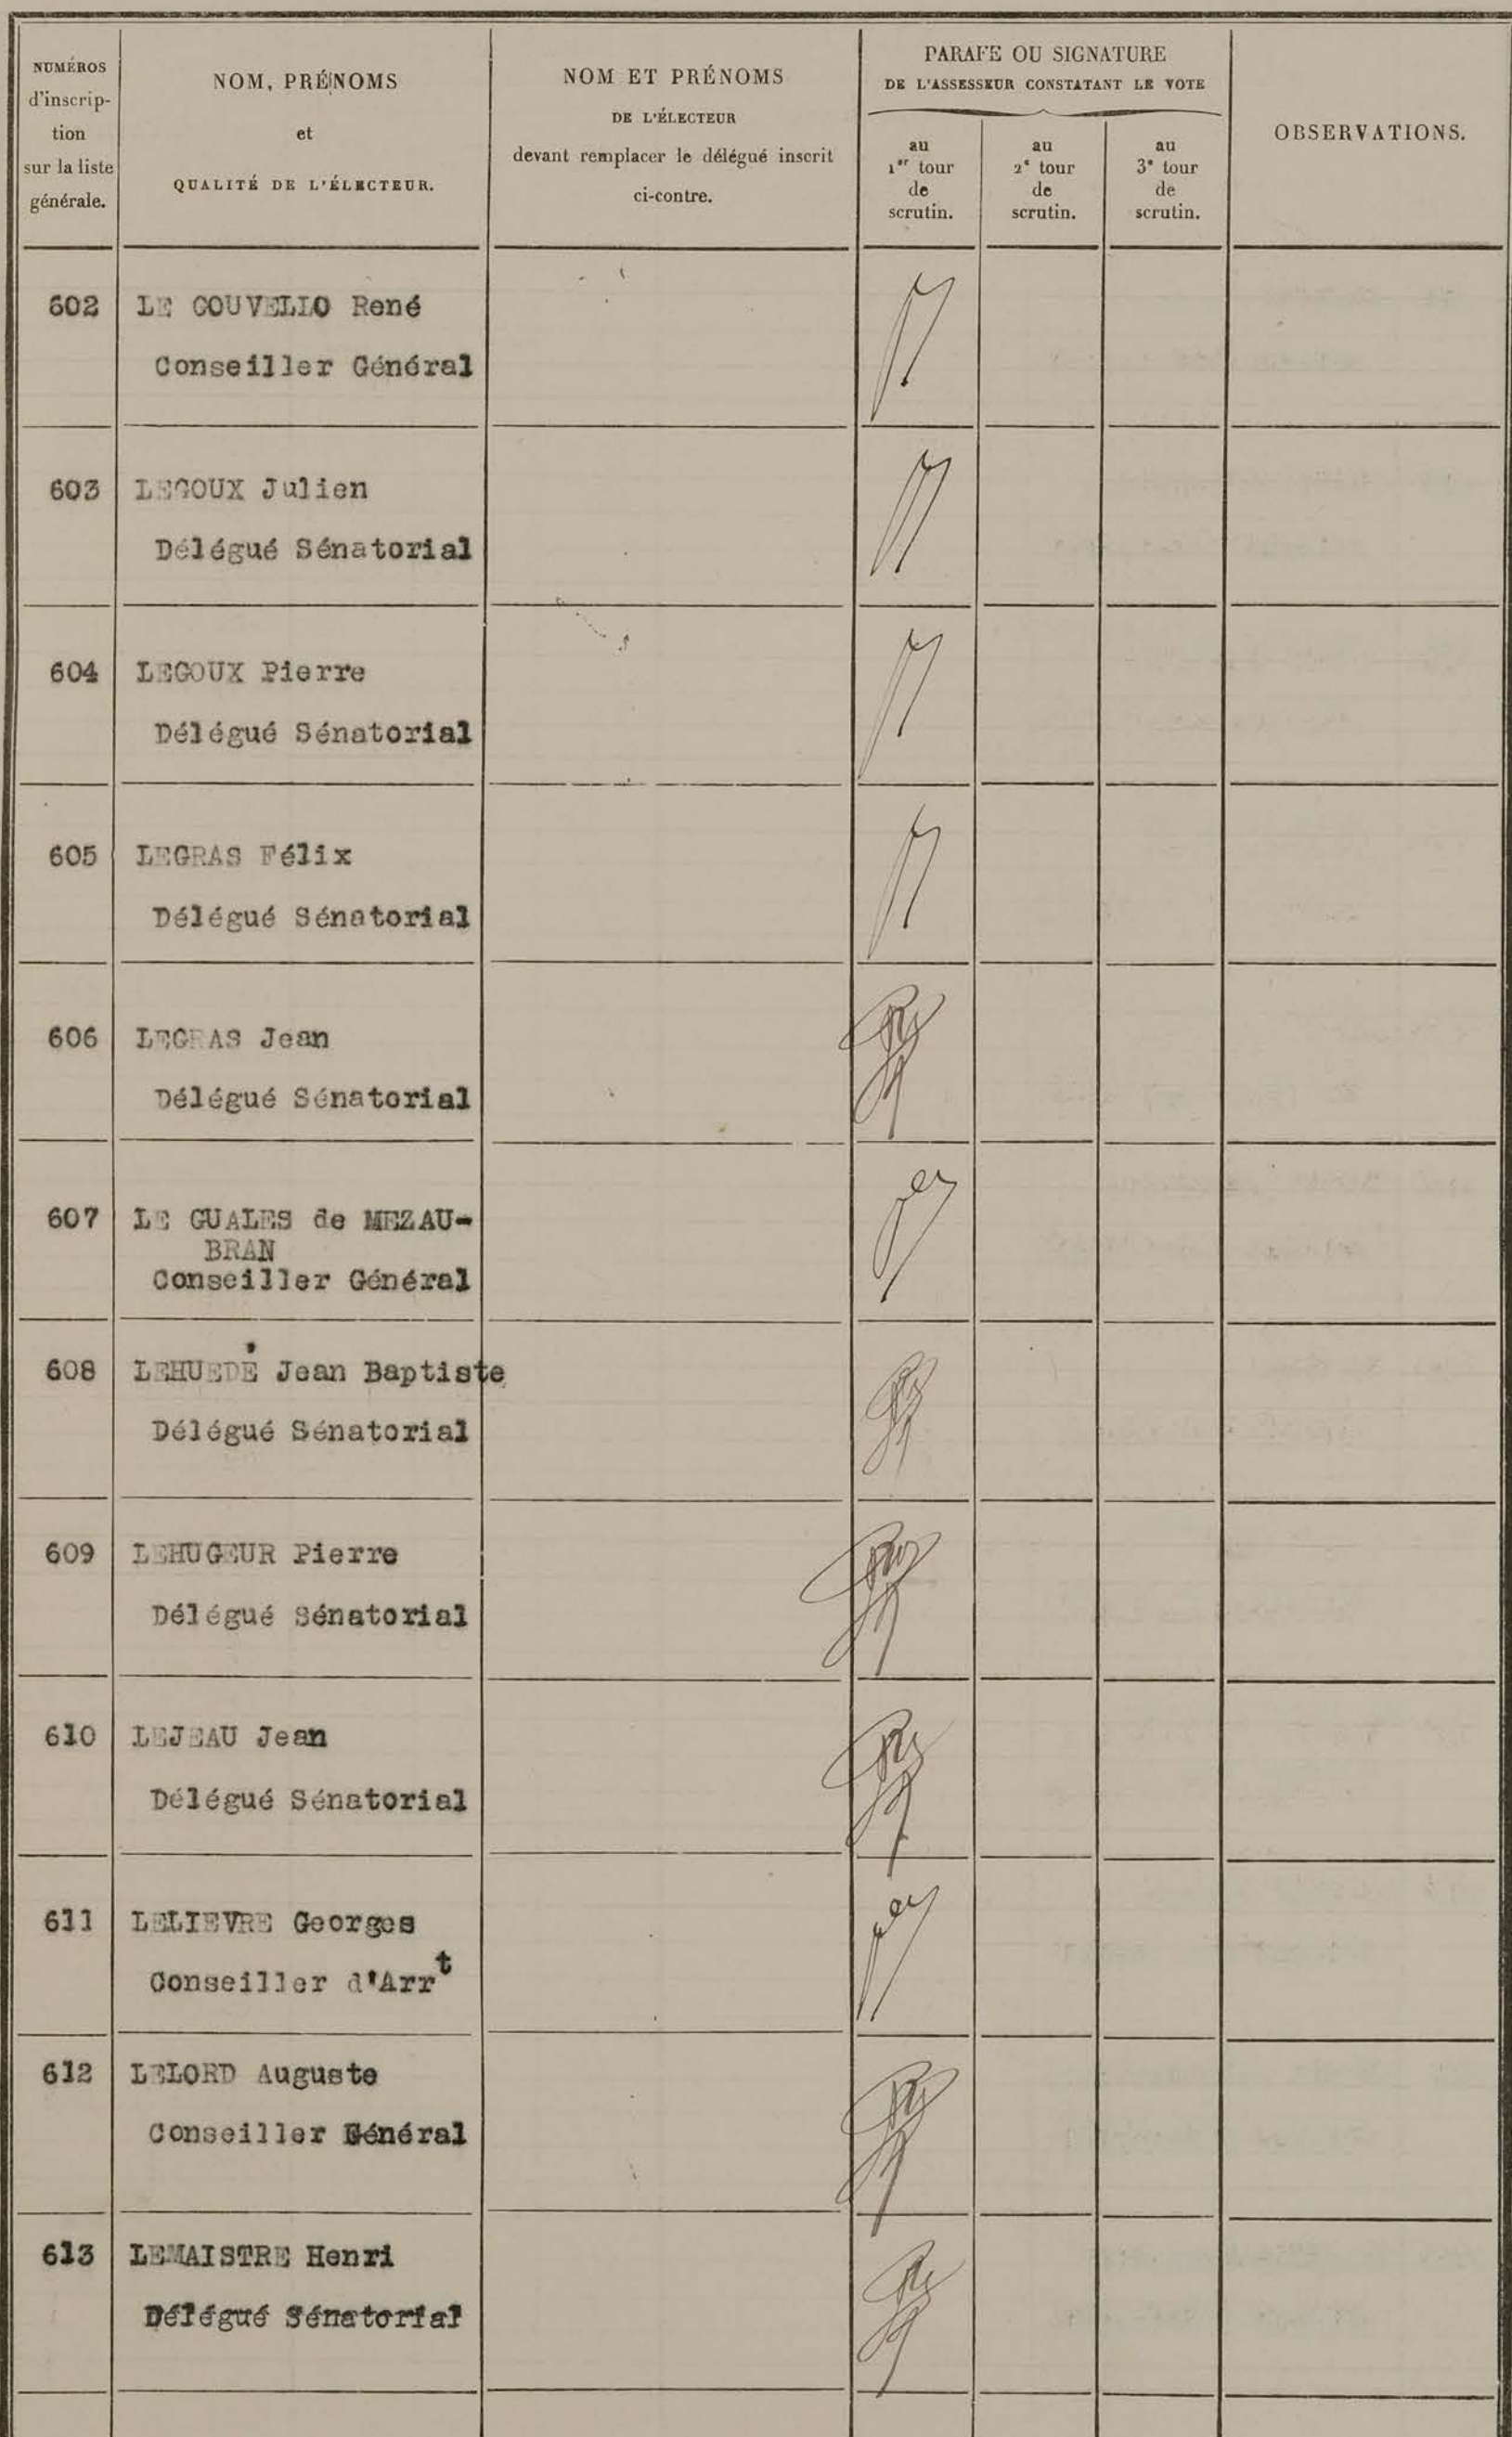 NUMÉROS
d'inscrip-
tion
sur la liste
générale.
NOM, PRÉNOMS
et
QUALITÉ DE L'ÉLECTEUR.
NOM ET PRÉNOMS
DE L'ÉLECTEUR
devant remplacer le délégué inscrit
ci-contre.
PARAFE OU SIGNATURE
DE L'ASSESSEUR CONSTATANT LE VOTE
au
1er tour
de
scrutin.
au
2e tour
de
scrutin.
au
3e tour
de
scrutin.
OBSERVATIONS.
602 LE GOUVELLO René
Conseiller Général
603 LEGOUX Julien
Délégué Sénatorial
604 LEGOUX Pierre
Délégué Sénatorial
605 LEGRAS Félix
Délégué Sénatorial
606 LEGRAS Jean
Délégué Sénatorial
607 LE GUALES de MEZAU-
BRAN
Conseiller Général
608 LEHUEDÉ Jean Baptiste
Délégué Sénatorial
609 LEHUGEUR Pierre
Délégué Sénatorial
610 LEJEAU Jean
Délégué Sénatorial
611 LELIEVRE Georges
Conseiller d'Arrt
612 LELORD Auguste
Conseiller Général
613 LEMAISTRE Henri
Délégué Sénatorial